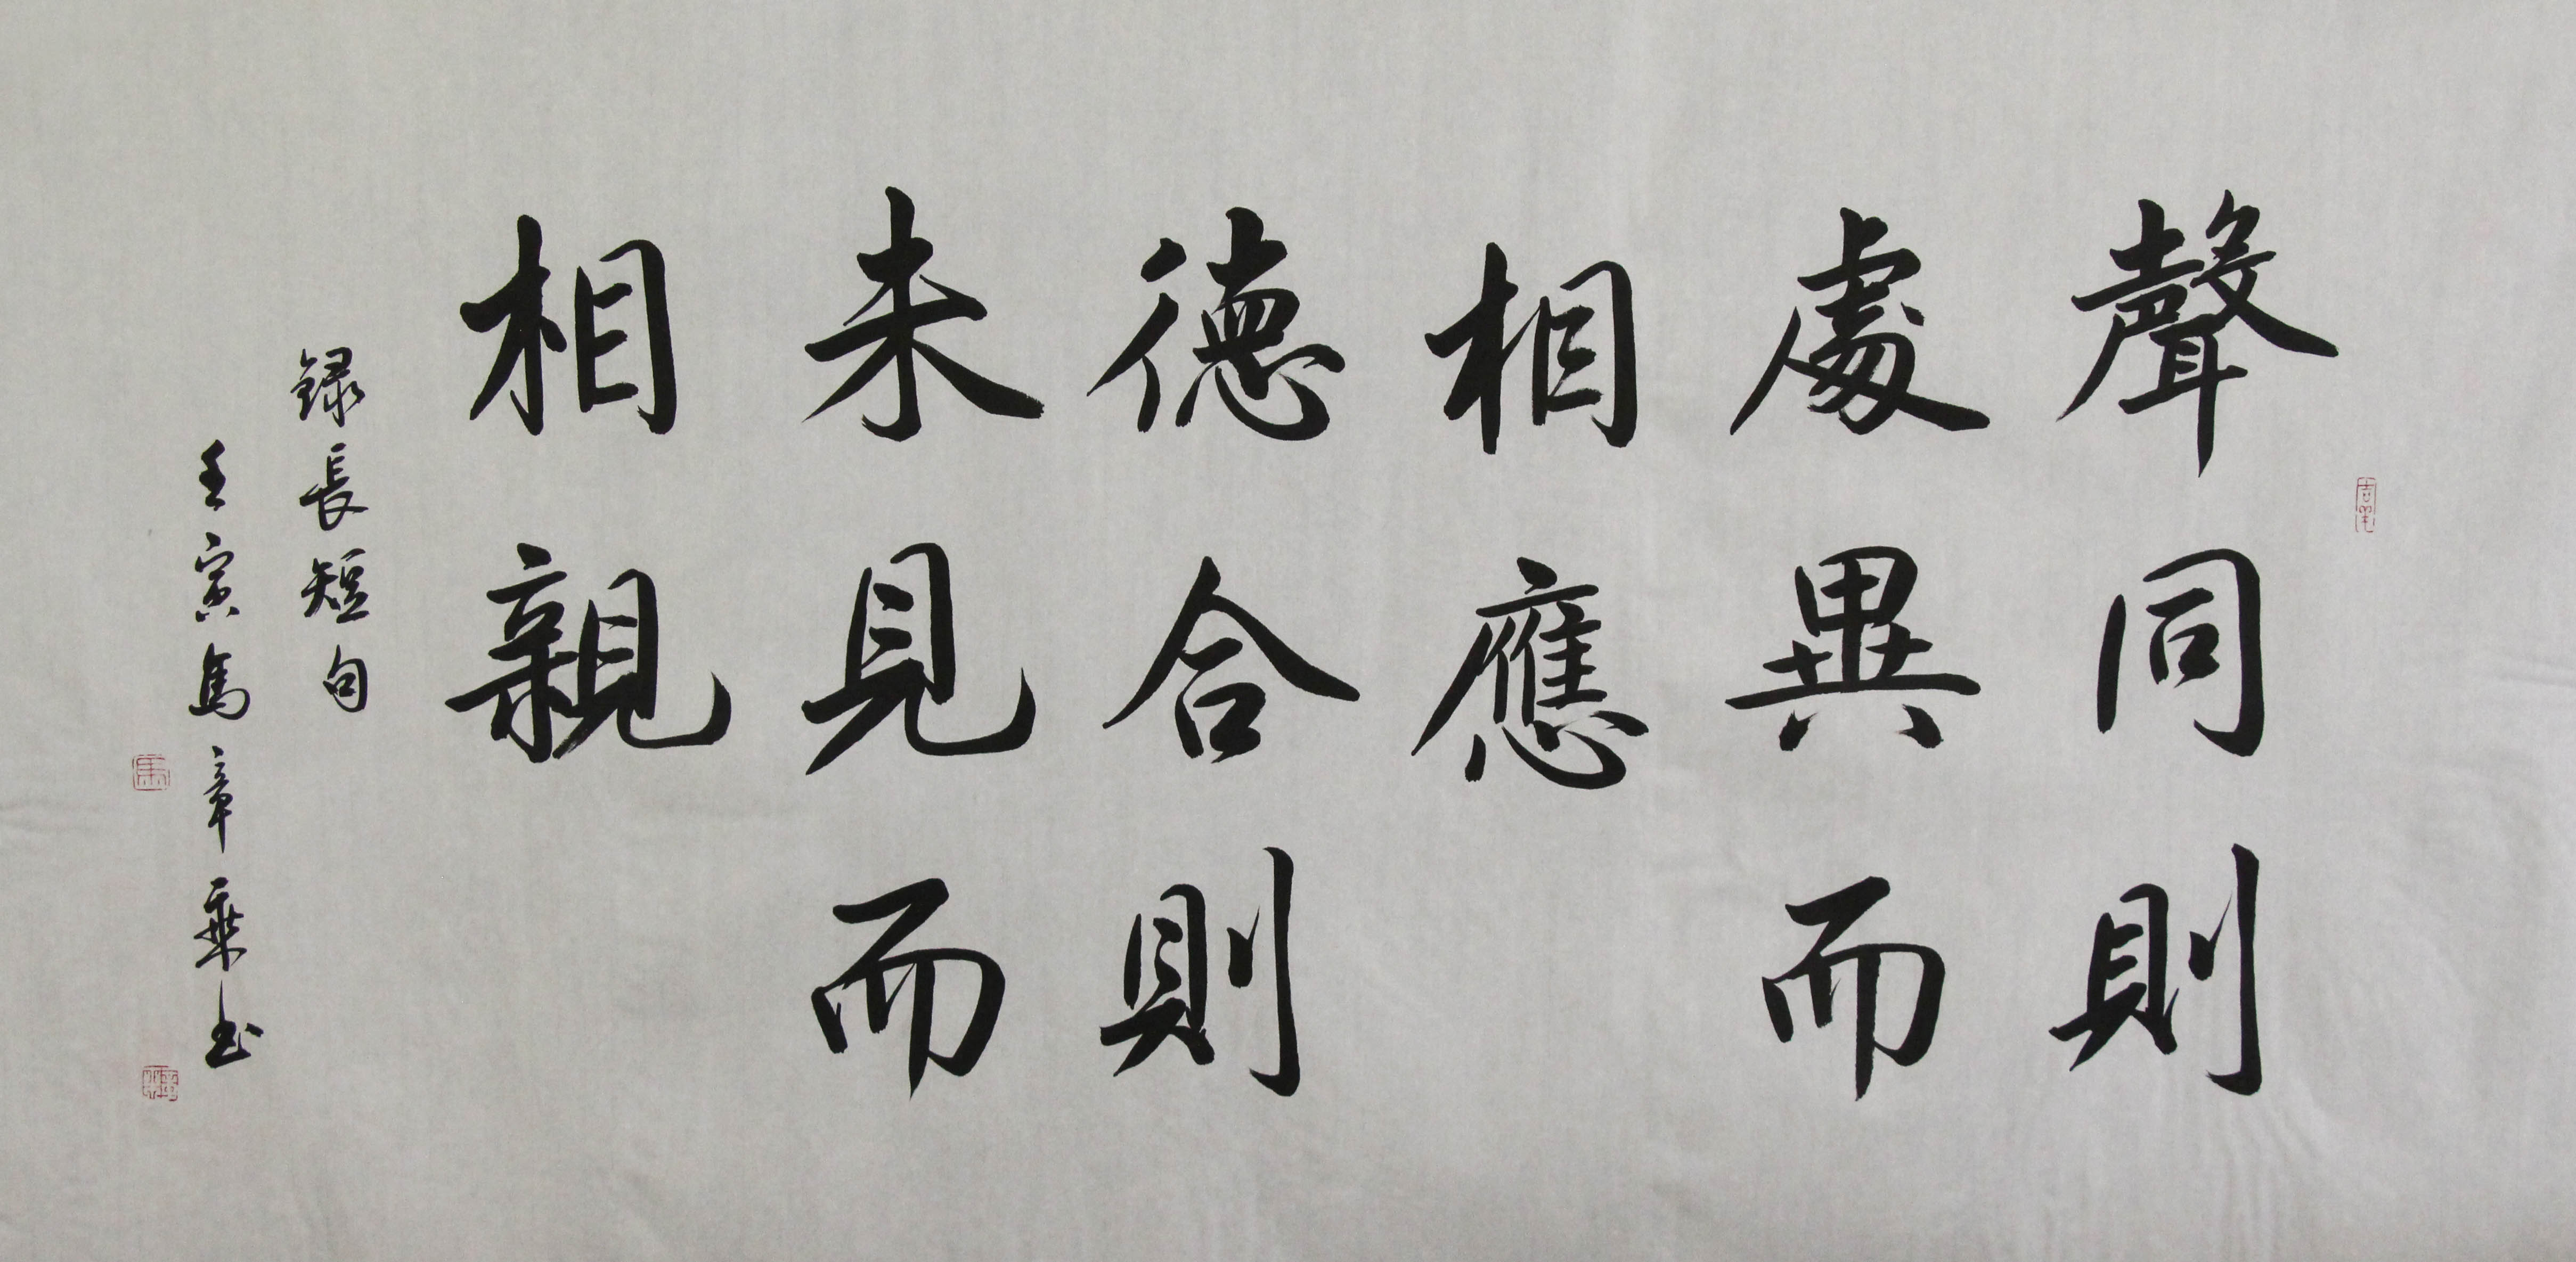 聲同則
處異而
相應
德合則
未見而
相親
録長短句
壬寅馬章乘书